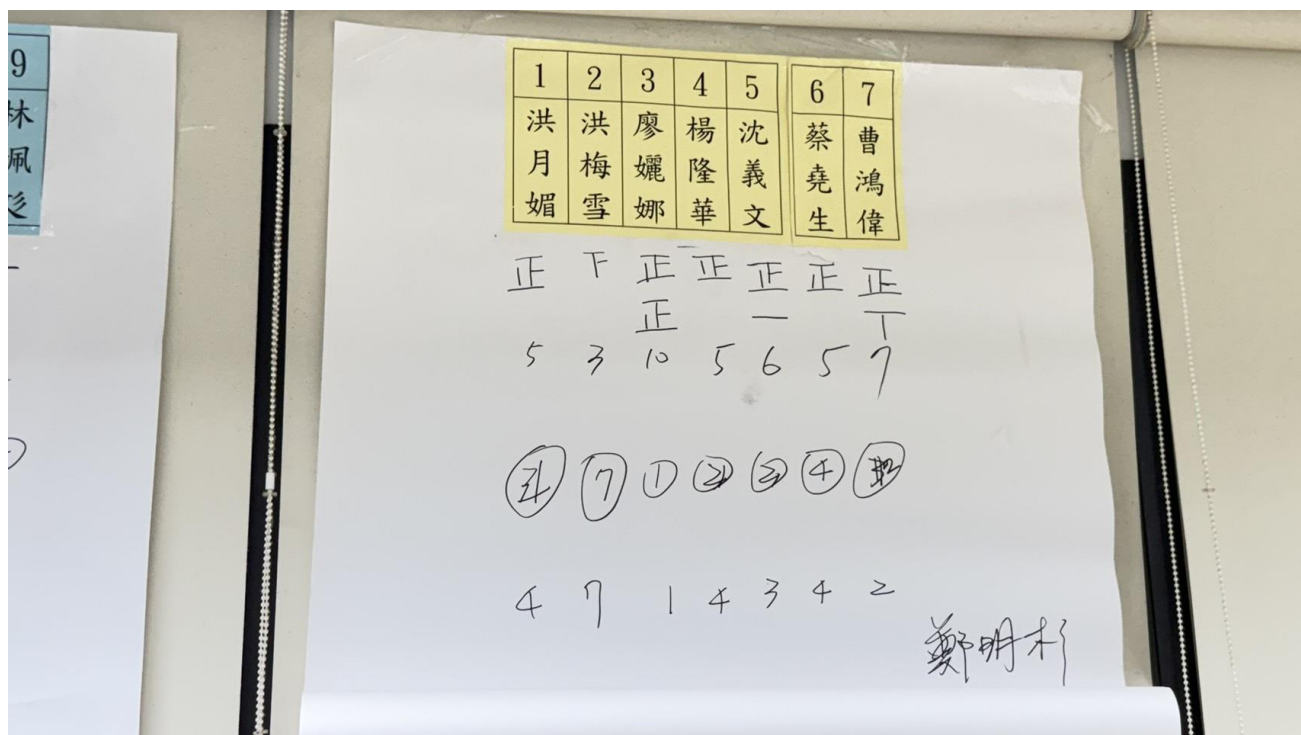 9
林
佩
1 2 3 4 5 6 7
洪月媚
洪梅雪
廖孋娜
楊隆華
沈義文
蔡堯生
曹鴻偉
正 下 正 正 正 正 正
正 一 丅
5 3 10 5 6 5 7
7 1 4
4 7 1 4 3 4 2
鄭明杉